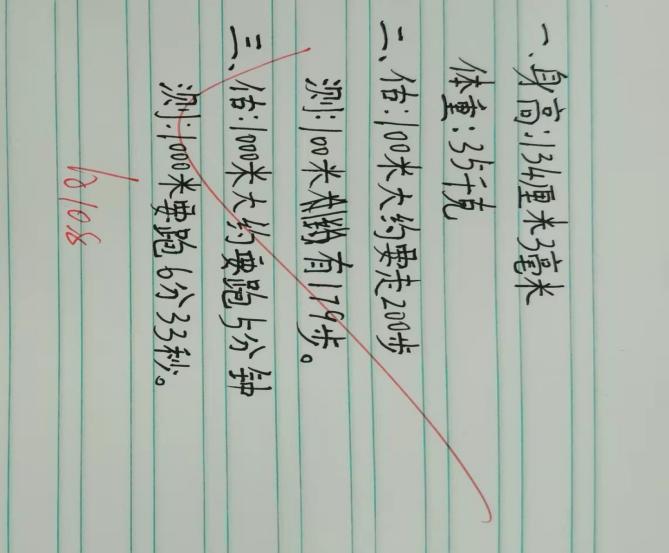 一、身高:134厘米3毫米
体重:35千克
二、估:100米大约要走200步
测:100米有179步。
三、估:1000米大约要跑5分钟
测:1000米要跑6分33秒。